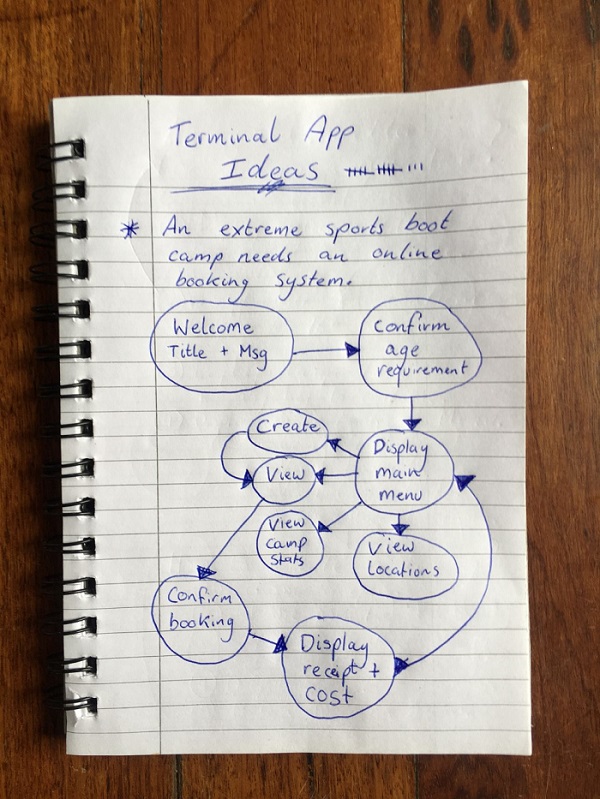 Terminal App
Ideas
* An extreme sports boot
camp needs an online
booking system.
Welcome
Title + Msg
Confirm
age
requirement
Create
Display
main
menu
View
View
camp
stats
View
Locations
Confirm
booking
Display
receipt +
COST